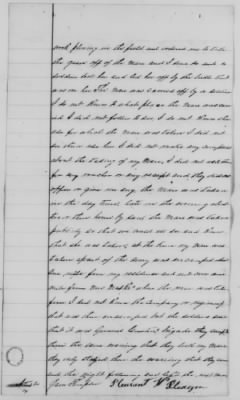 work plowing in the field and ordered me to take
the gears off of the Mare and I done so and a
soldier bot her and led her off by the bridle that
was on her The Mare was carried off by a soldier
I do not know to what place the Mare was carr
ied I did not follow to see I do not know the
use for which the Mare was taken I did not
see them use her I did not make any complaint
about the taking of my Mare I did not ask them
for any voucher or any receipt and they did not
offer to give me any The Mare was taken
in the day time late in the evening about
two or three hours by sun the Mare was taken
publicly so that we could all see and know
that she was taken, at the time my Mare was
taken apart of the army was encamped about
one mile from my residence and not over one
mile from when the Mare was taken
from I did not know the company or regiment
that was then encamped but the soldiers said
that it was General brigade they camped
there the same evening that they took my Mare
they only stayed there the evening that they came
and the night following and left the next morn